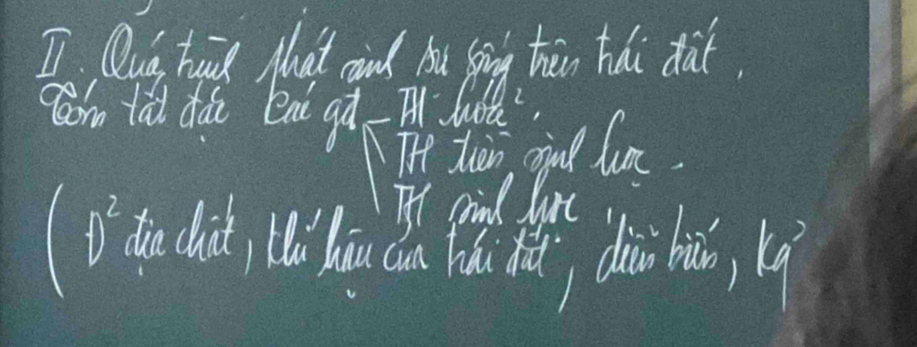 II. Quá trình phát sinh sự sống trên trái đất.
Tóm tắt đặc các gđ - TH hóa².
TH tiền sinh học.
TH sinh học
(Đ² địa chất, khí hậu của trái đất, diễn biến, Kq²